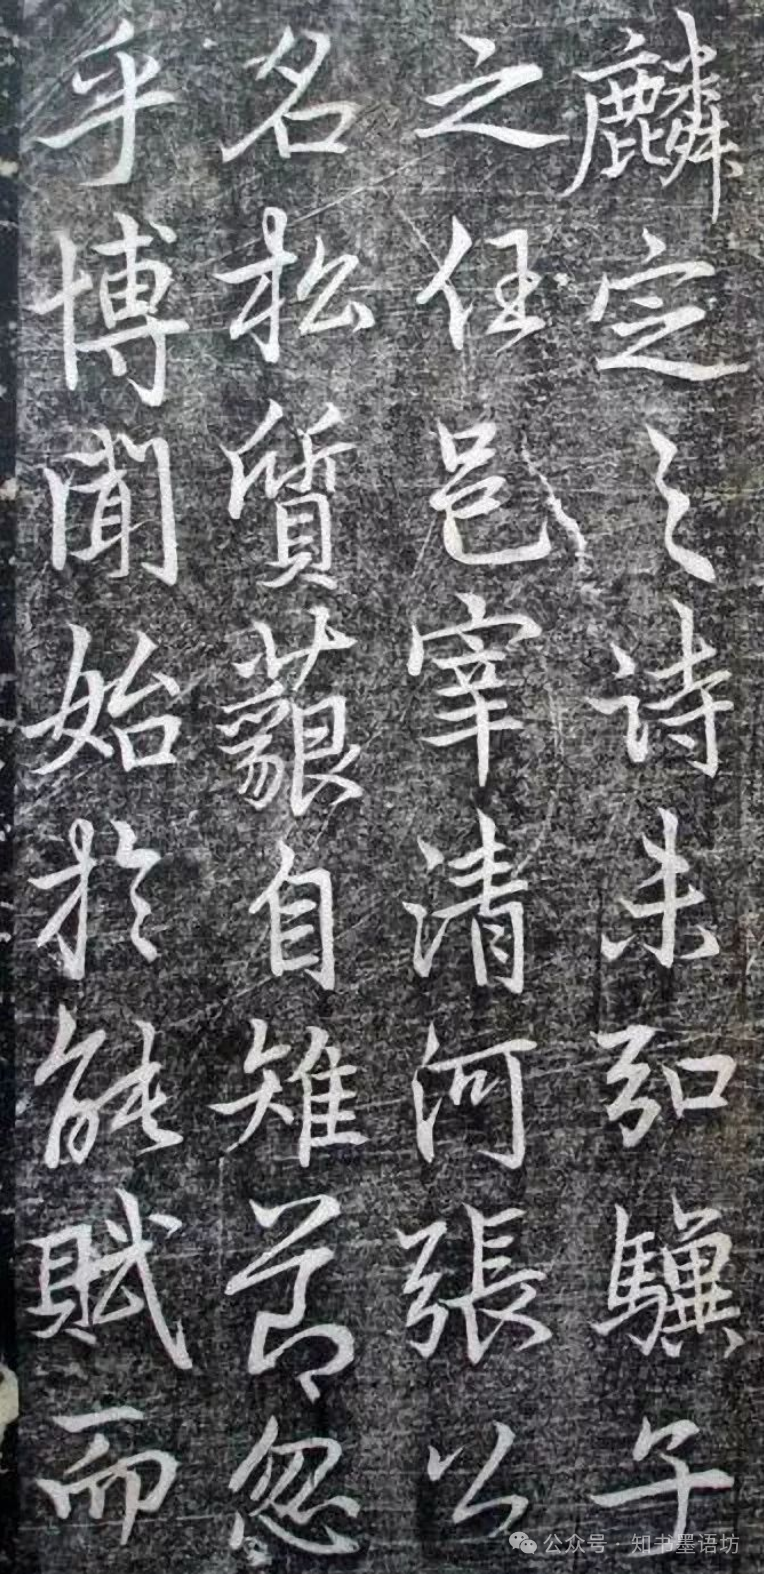 麟定之詩未弘驥子
之任邑宰清河張公
名松質藐自雉節忽
乎博聞始於能賦而
公众号 · 知书墨语坊